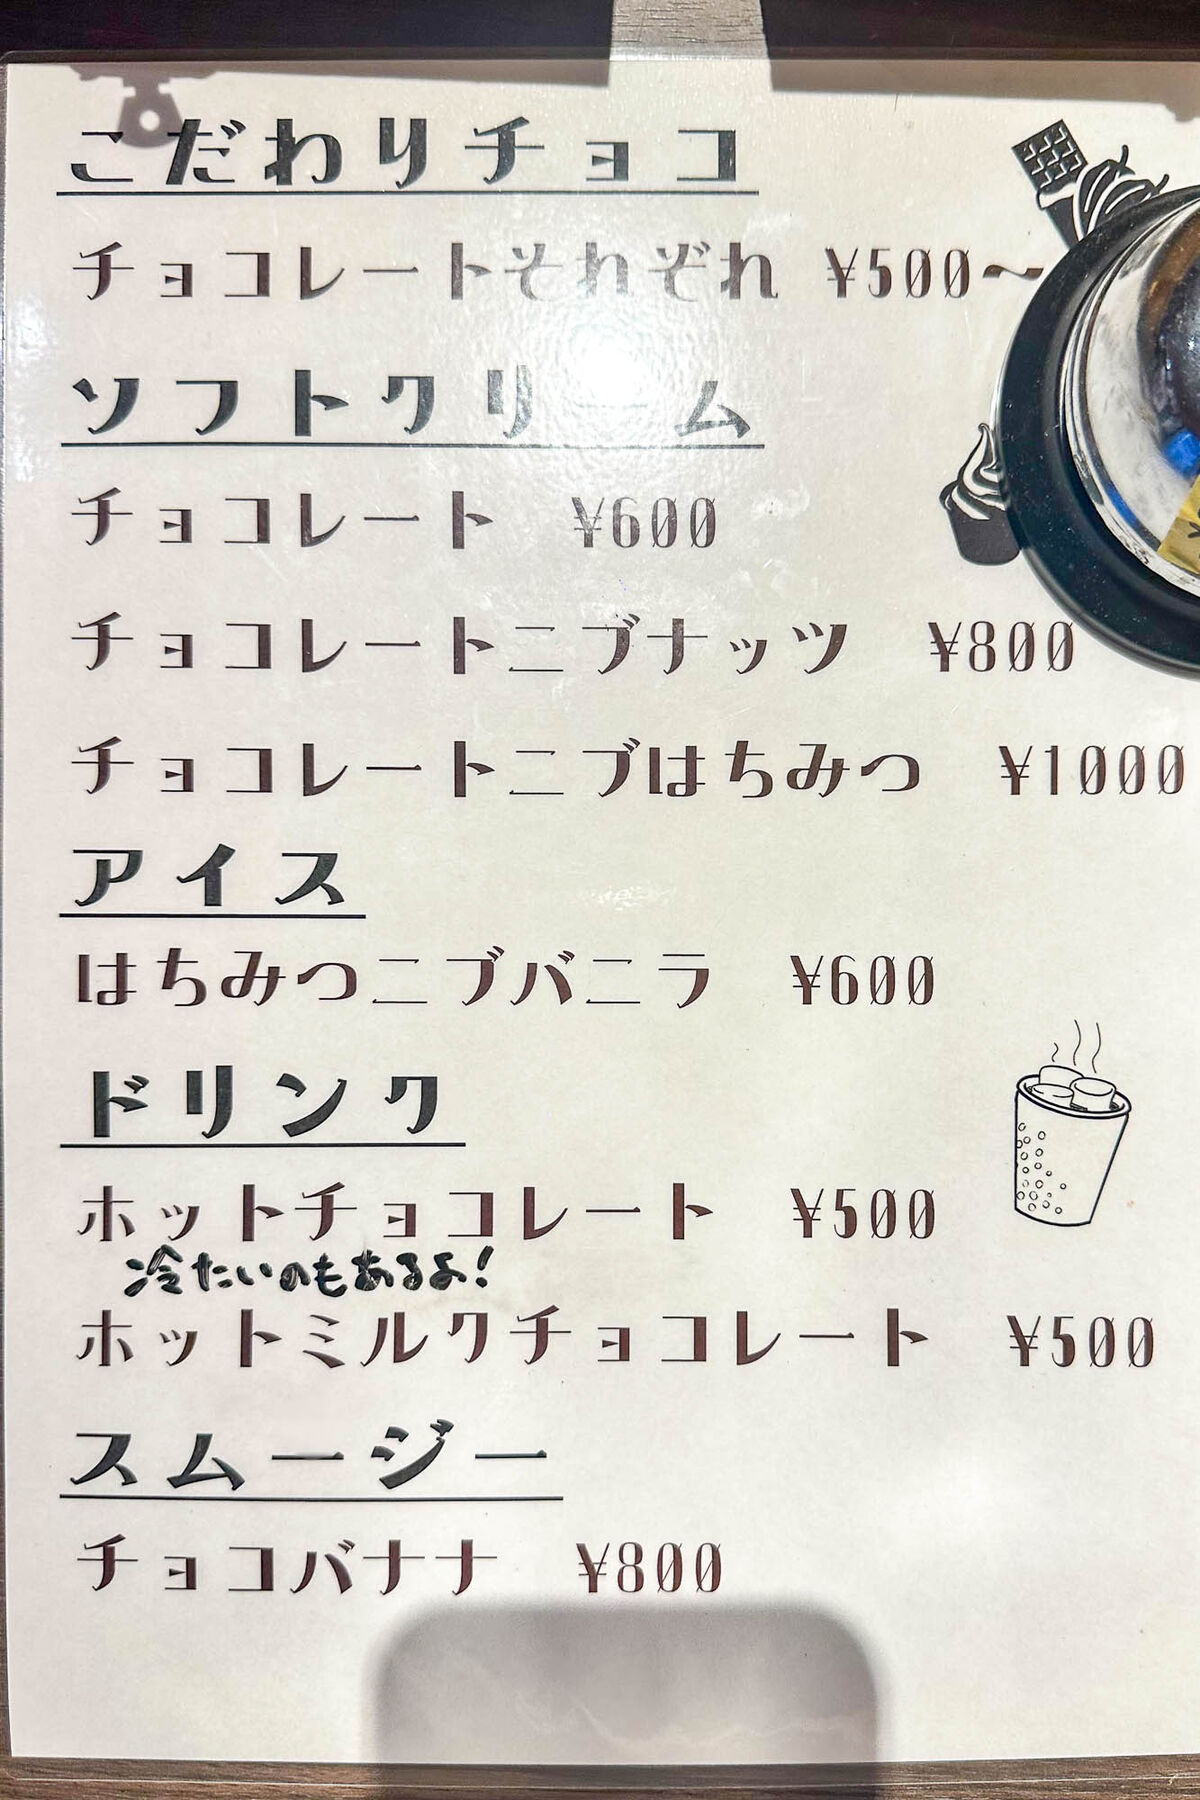 こだわりチョコ
チョコレートそれぞれ ¥500〜
ソフトクリーム
チョコレート ¥600
チョコレートニブナッツ ¥800
チョコレートニブはちみつ ¥1000
アイス
はちみつニブバニラ ¥600
ドリンク
ホットチョコレート ¥500
冷たいのもあるよ!
ホットミルクチョコレート ¥500
スムージー
チョコバナナ ¥800